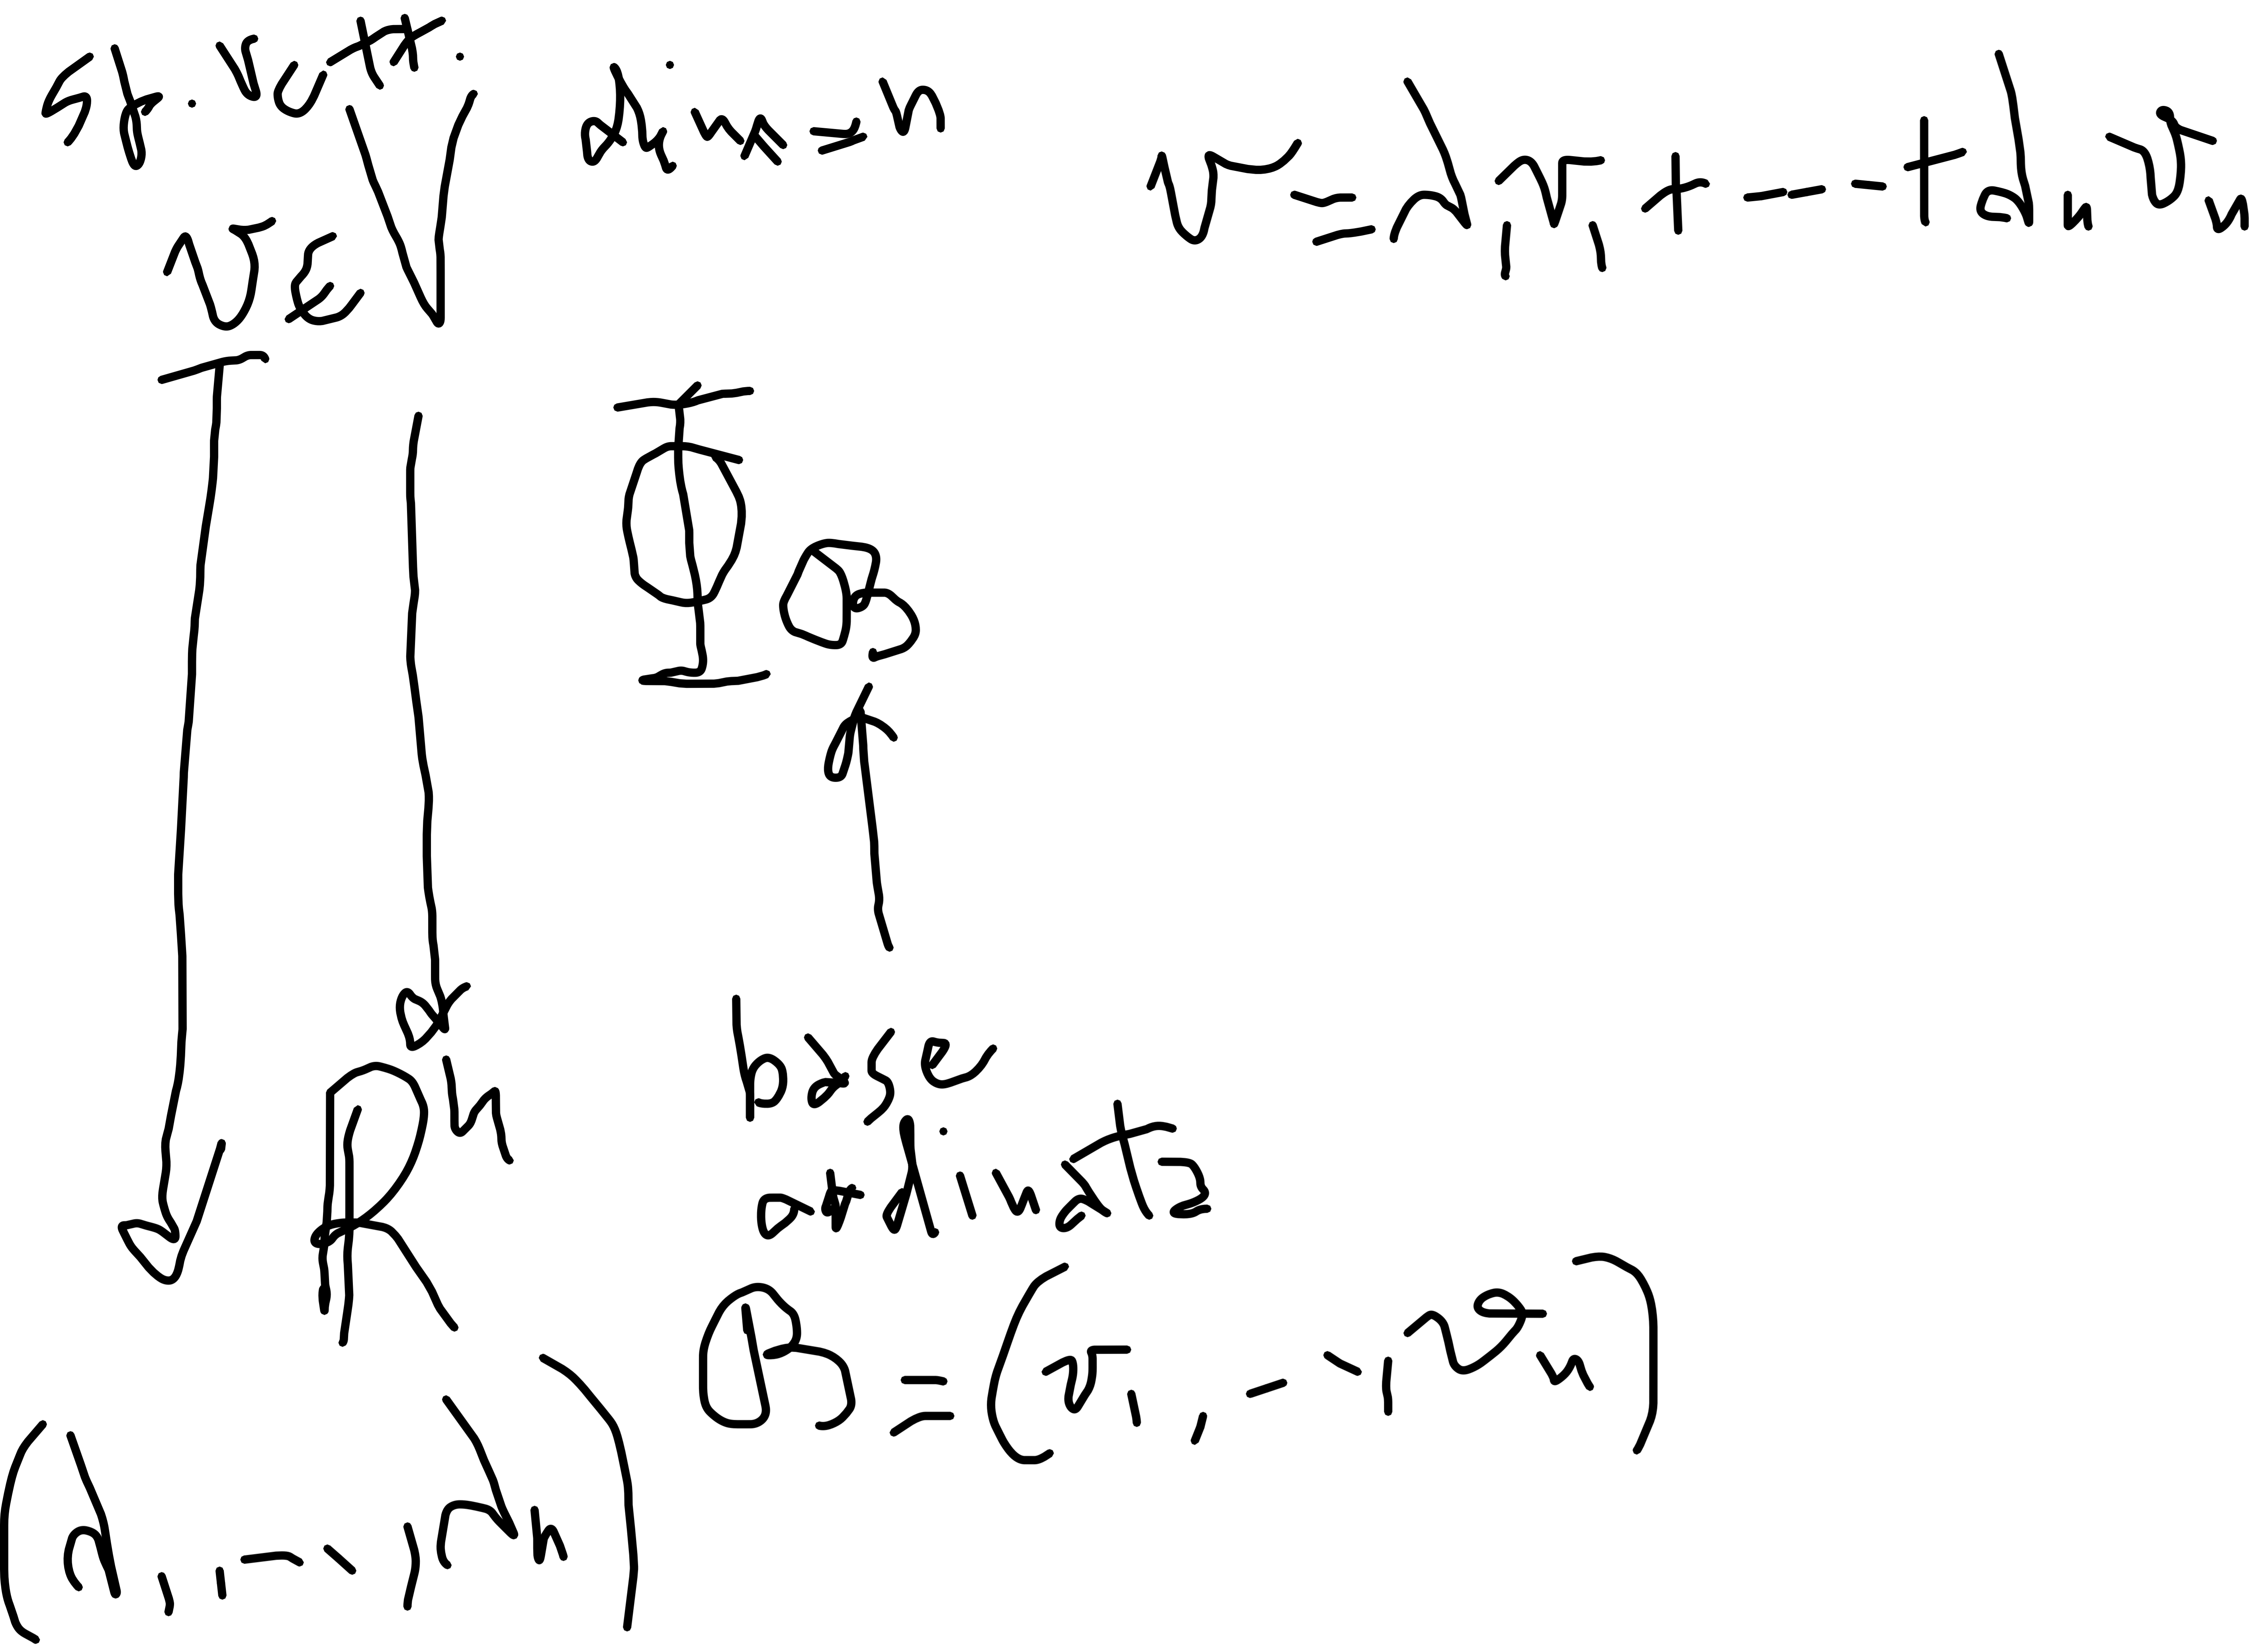 Sp. vett. dim = n
v ∈ V
v = λ₁v₁ + --- + λₙvₙ
Φ_B
ℝⁿ
base
ordinata
B = (v₁, --, vₙ)
(λ₁, --, λₙ)